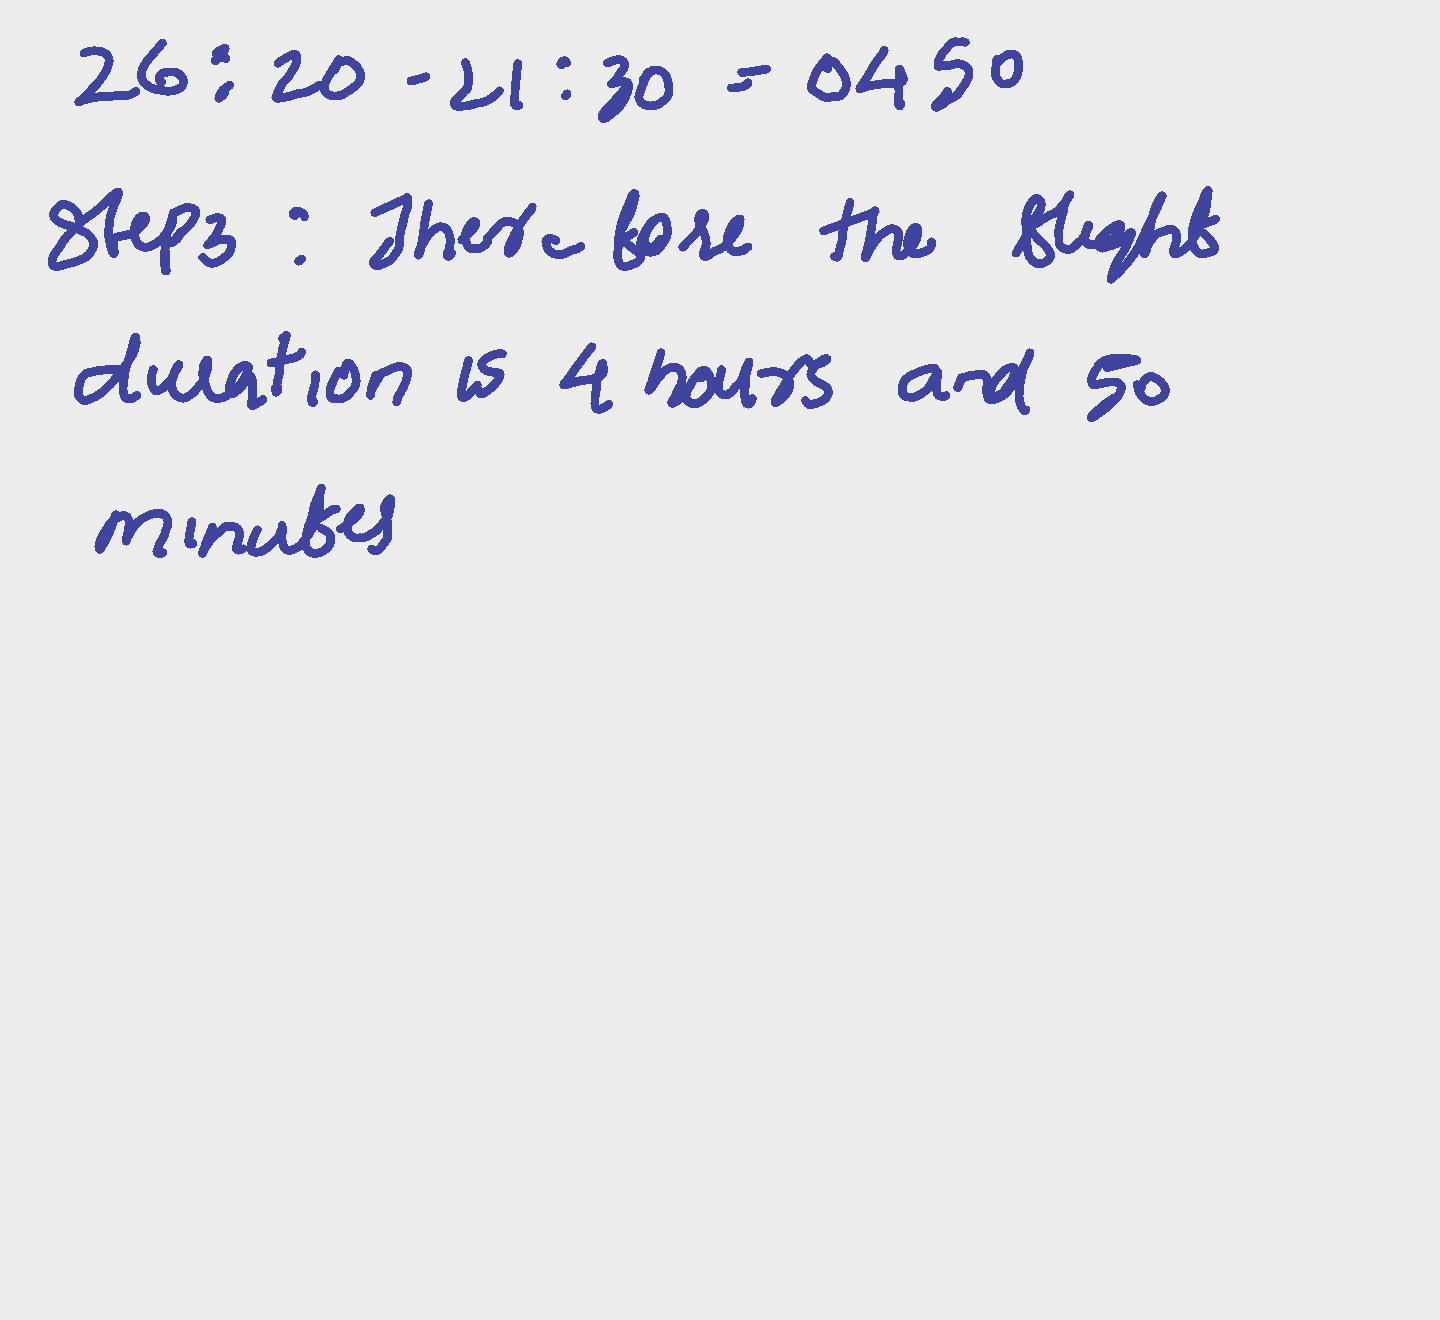 26:20 - 21:30 = 0450
Step3 : Therefore the flight
duration is 4 hours and 50
minutes